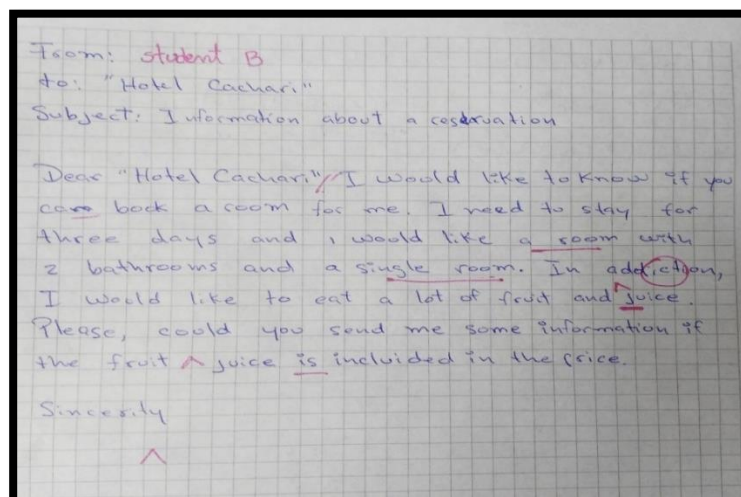 From: student B
to: "Hotel Cachari"
Subject: Information about a reservation
Dear "Hotel Cachari"/ I would like to know if you
can book a room for me. I need to stay for
three days and I would like a room with
2 bathrooms and a single room. In addiction,
I would like to eat a lot of fruit and juice.
Please, could you send me some information if
the fruit ^ juice is incluided in the price.
Sincerily
^